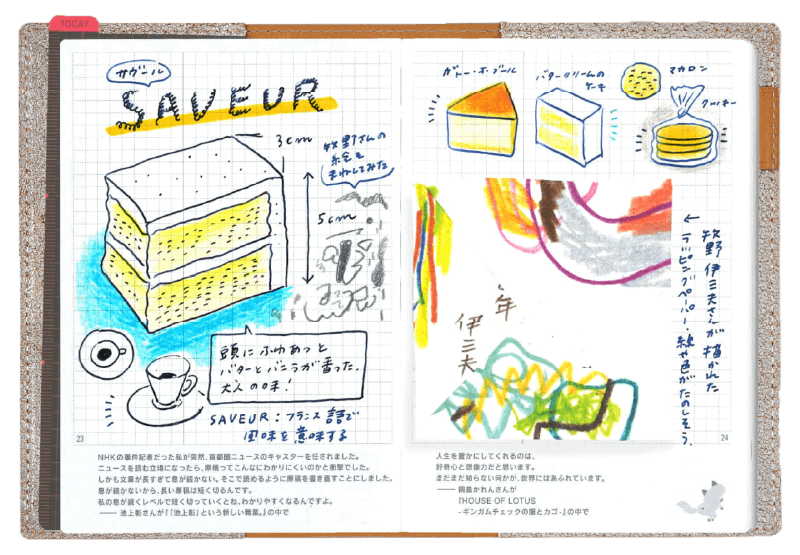 TODAY
サヴール
SAVEUR
3cm
5cm
牧野さんの
絵を
まねしてみた
頭にふゆあっと
バターとバニラが香った、
大人の味！
SAVEUR：フランス語で
風味を意味する
23
NHKの事件記者だった私が突然、首都圏ニュースのキャスターを任されました。
ニュースを読む立場になったら、原稿ってこんなにわかりにくいのかと衝撃でした。
しかも文章が長すぎて息が続かない。そこで読めるように原稿を書き直すことにしました。
息が続かないから、長い原稿は短く切るんです。
私の息が続くレベルで短く切っていくとね、わかりやすくなるんですよ。
―― 池上彰さんが『「池上彰」という新しい職業。』の中で
ガトー・ボ・ブール
バタークリームの
ケーキ
マカロン
クッキー
年
伊三夫
← 牧野伊三夫さんが描かれた
ラッピングペーパー。線や色がたのしそう。
24
人生を豊かにしてくれるのは、
好奇心と想像力だと思います。
まだまだ知らない何かが、世界にはあふれています。
―― 桐島かれんさんが
『HOUSE OF LOTUS
-ギンガムチェックの服とカゴ-』の中で